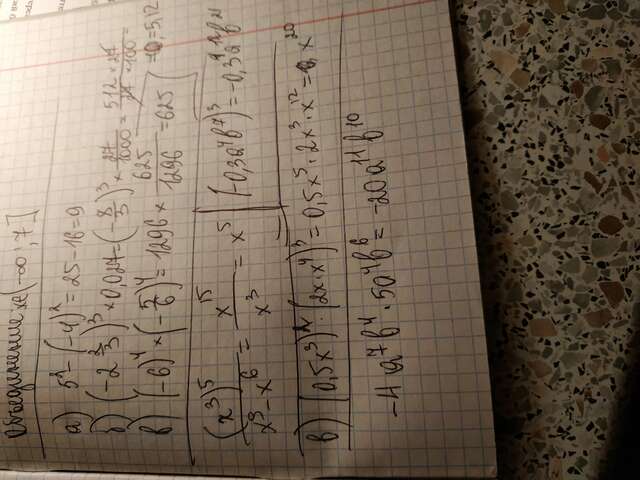 Объединение x∈(-∞; 7]
а) 5² - (-4)² = 25 - 16 = 9
б) (-2 2/3)³ × 0,027 = (-8/3)³ × 27/1000 = 512 × 27 / 27 × 100 =
= -5,12
в) (-6)⁴ × (-5/6)⁴ = 1296 × 625/1296 = 625
(x³)⁵ / x³ - x⁶ = x¹⁵ / x³ = x⁵
(-0,3a⁴b⁷)³ = -0,3⁹a¹²b²¹
в) (0,5x³)² · (2x·x⁴)³ = 0,5x⁵ · 2x³ · x¹² = x²⁰
-4a⁷b⁴ · 5a⁴b⁶ = -20a¹¹b¹⁰